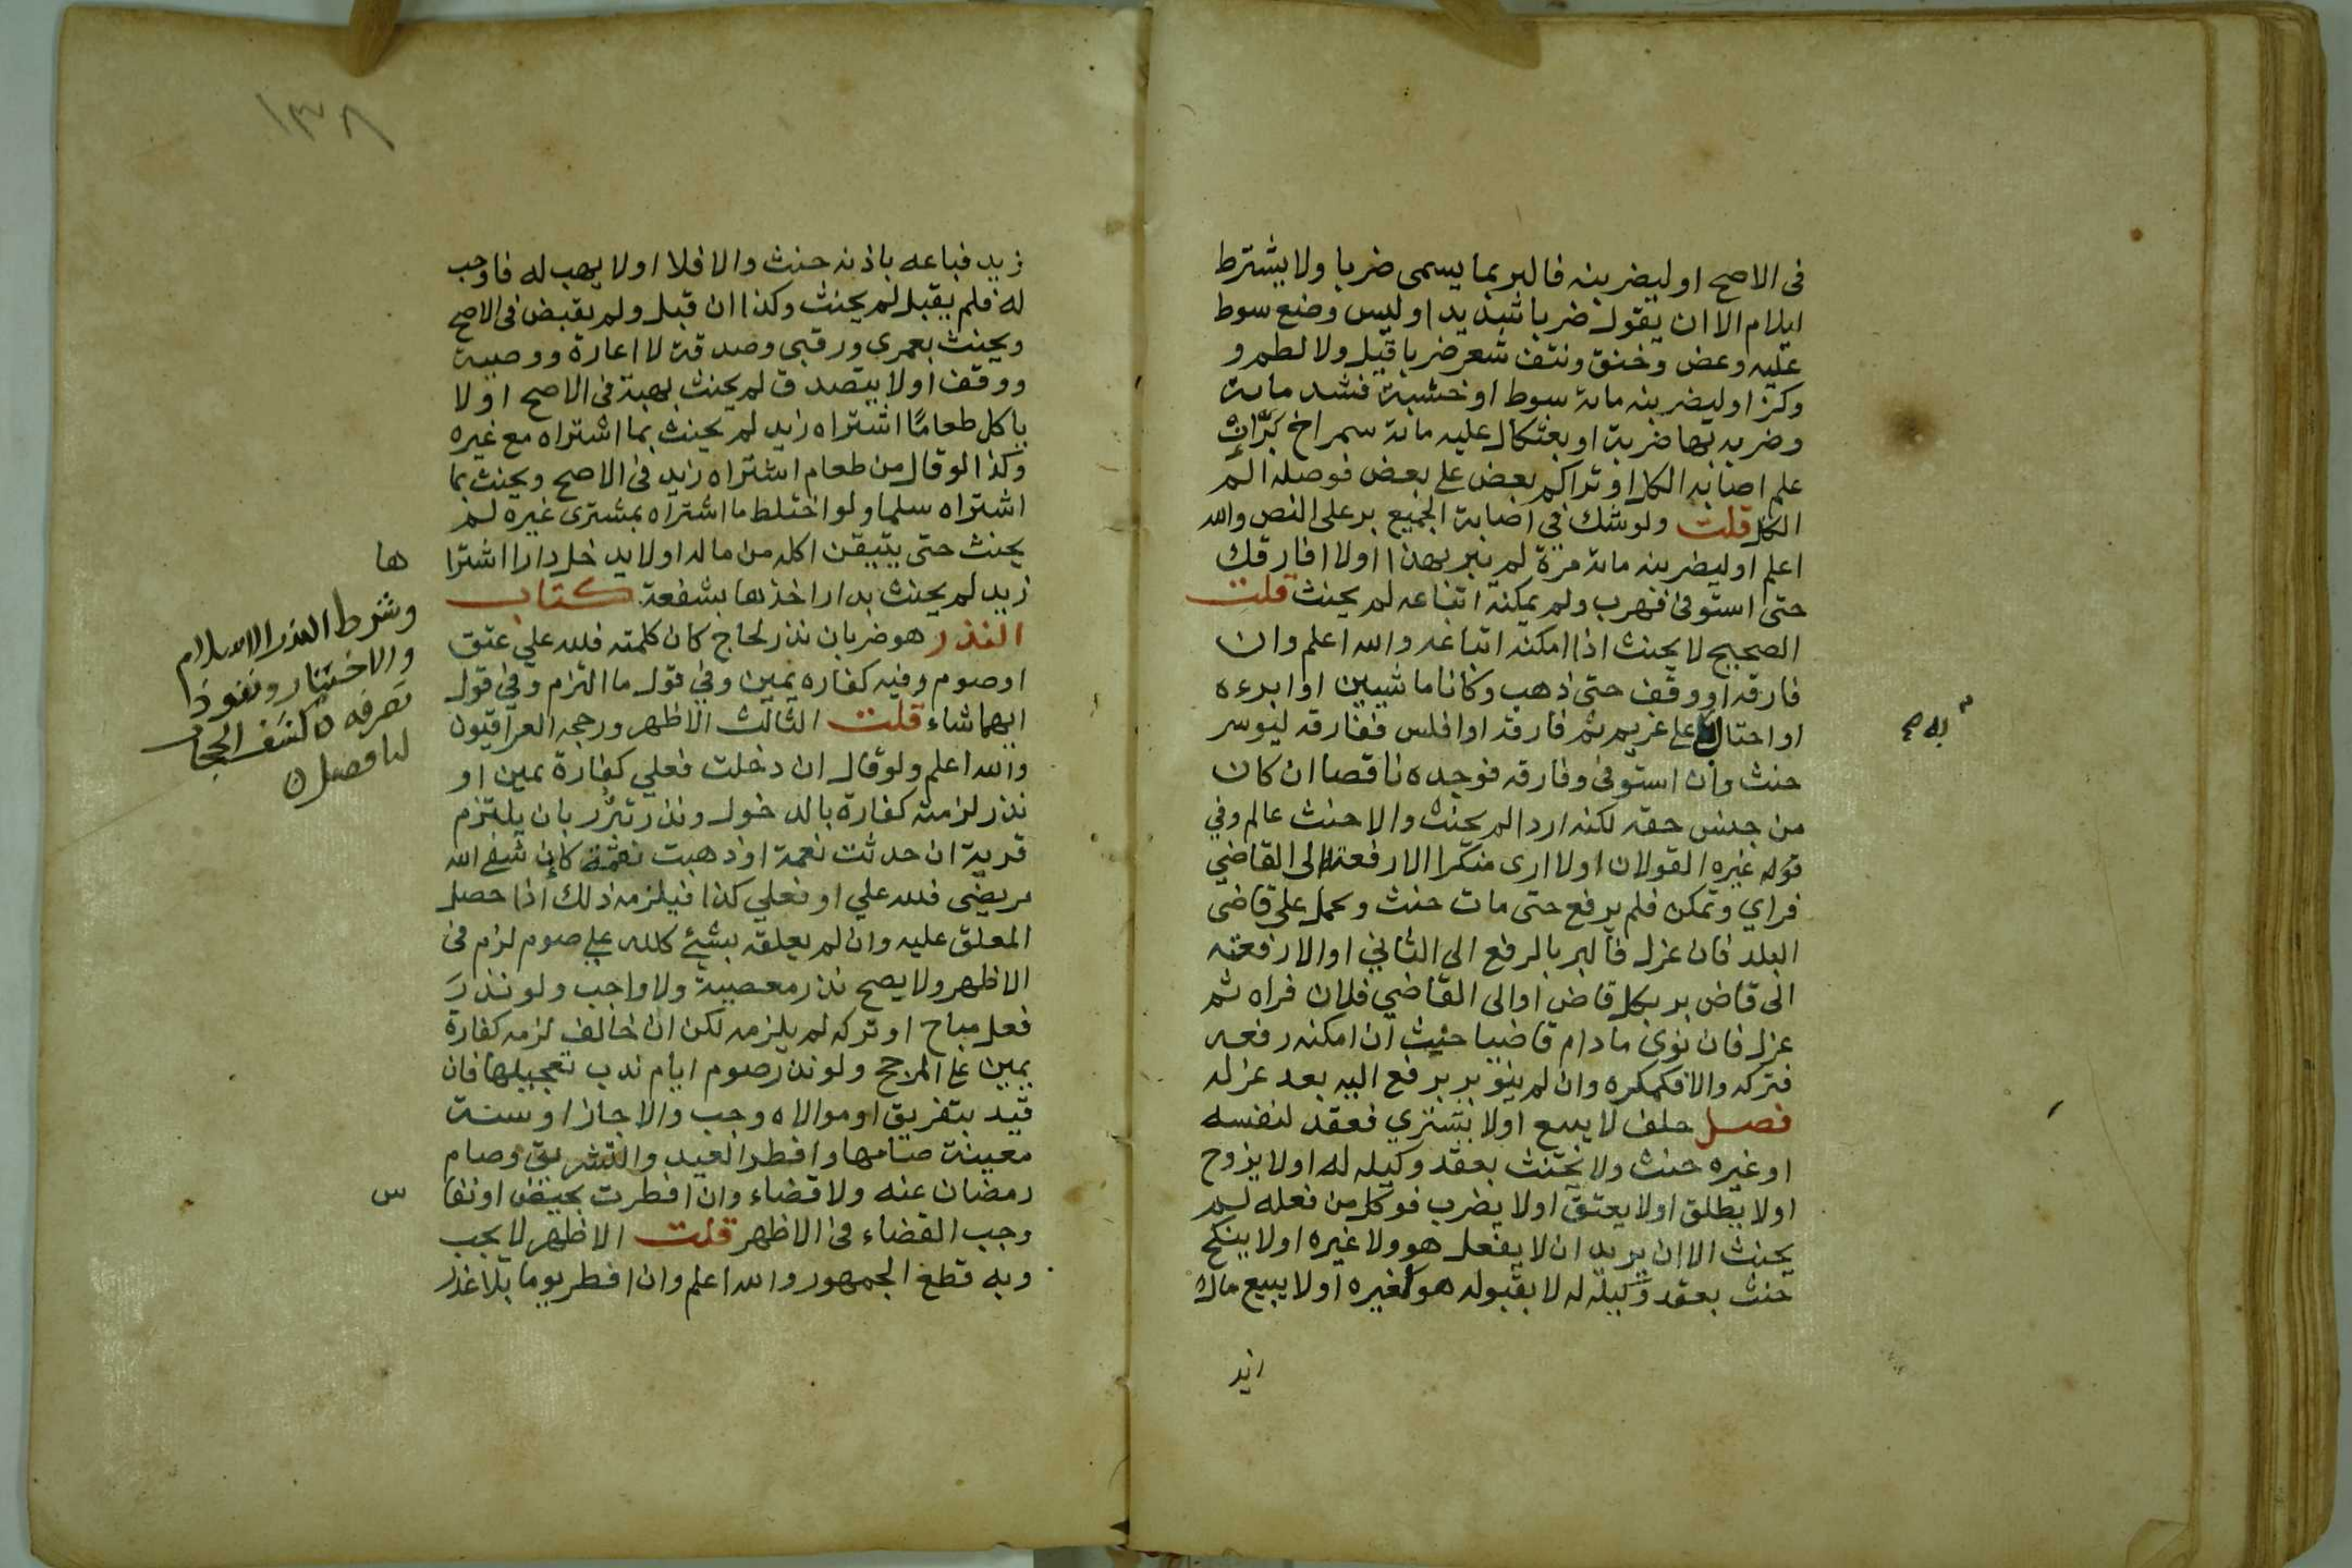 فى الاصح او ليضربنه فالبر بما يسمى ضربا ولا يشترط
ايلام الا ان يقول ضربا شديدا وليس وضع سوط
عليه وعض وخنق ونتف شعر ضربا قيل ولا لطم و
وكز او ليضربنه ماىة سوط او خشبة فشد ماىة
وضربه بها ضربة او بعثكال عليه مائة سمراخ بَرَّ ان
علم اصابه الكل او تراكم بعض على بعض فوصله الم
الكل قلت ولو شك في اصابة الجميع بر على النص والله
اعلم او ليضربنه مائة مرة لم يبر بهذا او لا افارقك
حتى استوفى فهرب ولم يمكنه اتباعه لم يحنث قلت
الصحيح لا يحنث اذا امكنه اتباعه والله اعلم وان
فارقه او وقف حتى ذهب وكانا ماشيين او ابرءه
او احتال على غريم ثم فارقه او افلس ففارقه ليوسر
به صح
حنث وان استوفى وفارقه فوجده ناقصا ان كان
من جنس حقه لكنه اردا لم يحنث والا حنث عالم وفي
قوله غيره القولان او لا ارى منكرا الا رفعته الى القاضي
فراي وتمكن فلم يرفع حتى مات حنث ويحمل على قاضى
البلد فان عزل فالبر بالرفع الى الثاني او الا رفعته
الى قاض بر بكل قاض او الى القاضي فلان فراه ثم
عزل فان نوى ما دام قاضيا حنث ان امكنه رفعه
فتركه والا فكمكره وان لم ينو بر برفع اليه بعد عزله
فصل حلف لا يبيع او لا يشتري فعقد لنفسه
او غيره حنث ولا يحنث بعقد وكيله له او لا يزوج
او لا يطلق او لا يعتق او لا يضرب فوكل من فعله لم
يحنث الا ان يريد ان لا يفعل هو ولا غيره او لا ينكح
حنث بعقد وكيله له لا بقبوله هو لغيره او لا يبيع مال
زيد
١٣٨
زيد فباعه باذنه حنث والا فلا او لا يهب له فاوجب
له فلم يقبل لم يحنث وكذا ان قبل ولم يقبض فى الاصح
ويحنث بعمرى ورقبى وصدقة لا اعارة ووصية
ووقف او لا يتصدق لم يحنث بهبة فى الاصح او لا
ياكل طعامًا اشتراه زيد لم يحنث بما اشتراه مع غيره
وكذا لو قال من طعام اشتراه زيد فى الاصح ويحنث بما
اشتراه سلما ولو اختلط ما اشتراه بمشترى غيره لم
يحنث حتى يتيقن اكله من ماله او لا يدخل دارا اشترا
ها
زيد لم يحنث بدار اخذها بشفعة كتاب
النذر هو ضربان نذر لجاج كان كلمته فلله علي عتق
او صوم وفيه كفاره يمين وفي قول ما التزم وفي قول
ايهما شاء قلت الثالث الاظهر ورجحه العراقيون
والله اعلم ولو قال ان دخلت فعلي كفارة يمين او
نذر لزمته كفارة بالدخول ونذر تبرُّر بان يلتزم
قربة ان حدثت نعمة او ذهبت نقمة كان شفى الله
مريضى فلله علي او فعلي كذا فيلزمه ذلك اذا حصل
المعلق عليه وان لم يعلقه بشئ كلله علي صوم لزم فى
الاظهر ولا يصح نذر معصية ولا واجب ولو نذرَ
فعل مباح او تركه لم يلزمه لكن ان خالف لزمه كفارة
يمين على المرجح ولو نذر صوم ايام ندب تعجيلها فان
قيد بتفريق او موالاه وجب والا جاز او سنة
معينة صامها وافطر العيد والتشريق وصام
رمضان عنه ولا قضاء وان افطرت بحيض او نفا
س
وجب القضاء فى الاظهر قلت الاظهر لا يجب
وبه قطع الجمهور والله اعلم وان افطر يوما بلا عذر
وشرط النذر الاسلام
والاختيار ونفوذ
تصرفه